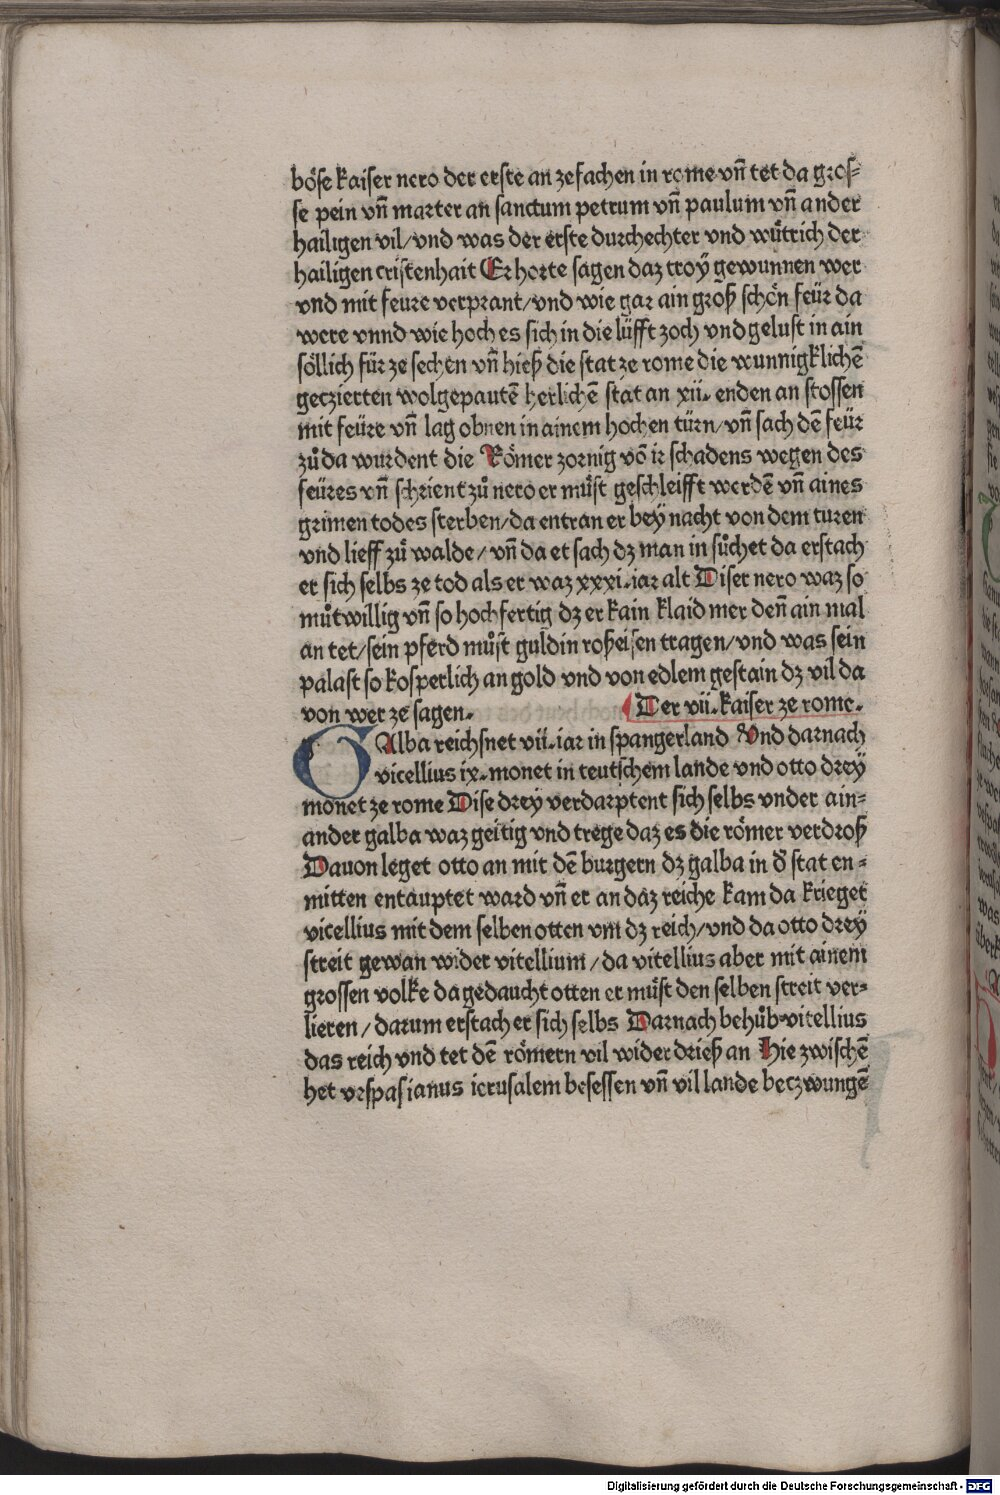 böse kaiser nero der erste an zefachen in rome vn̄ tet da gros-
se pein vn̄ marter an sanctum petrum vn̄ paulum vn̄ ander
hailigen vil/vnd was der erste durchechter vnd wuͤtrich der
hailigen cristenhait Er horte sagen daz troÿ gewunnen wer
vnd mit feure verprant/vnd wie gar ain groß schön feür da
were vnnd wie hoch es sich in die lüfft zoch vnd gelust in ain
söllich für ze sechen vn̄ hieß die stat ze rome die wunnigklichē
geczierten wolgepautē herlichē stat an xii. enden an stossen
mit feüre vn̄ lag obnen in ainem hochen türn/vn̄ sach dē feür
zuͦ da wurdent die Römer zornig vō ir schadens wegen des
feüres vn̄ schrient zuͦ nero er muͤst geschleifft werdē vn̄ aines
grimen todes sterben/da entran er beÿ nacht von dem turen
vnd lieff zuͦ walde/vn̄ da er sach dz man in suͦchet da erstach
er sich selbs ze tod als er waz xxxi.iar alt Diser nero waz so
muͦtwillig vn̄ so hochfertig dz er kain klaid mer den̄ ain mal
an tet/sein pferd muͤst guldin roßeisen tragen/vnd was sein
palast so kosperlich an gold vnd von edlem gestain dz vil da
von wer ze sagen.
Der vii.kaiser ze rome.
GAlba reichsnet vii.iar in spangerland Vnd darnach
vicellius ix.monet in teutschem lande vnd otto dreÿ
monet ze rome Dise dreÿ verdarptent sich selbs vnder ain-
ander galba waz geitig vnd trege daz es die römer verdroß
Dauon leget otto an mit dē burgern dz galba in d̄ stat en-
mitten entauptet ward vn̄ er an daz reiche kam da krieget
vicellius mit dem selben otten vm dz reich/vnd da otto dreÿ
streit gewan wider vitellium/da vitellius aber mit ainem
grossen volke da gedaucht otten er muͤst den selben streit ver-
lieren/darum erstach er sich selbs Darnach behuͦb vitellius
das reich vnd tet dē römern vil wider drieß an Hie zwischē
het vespasianus ierusalem besessen vn̄ vil lande beczwungē
Digitalisierung gefördert durch die Deutsche Forschungsgemeinschaft - DFG